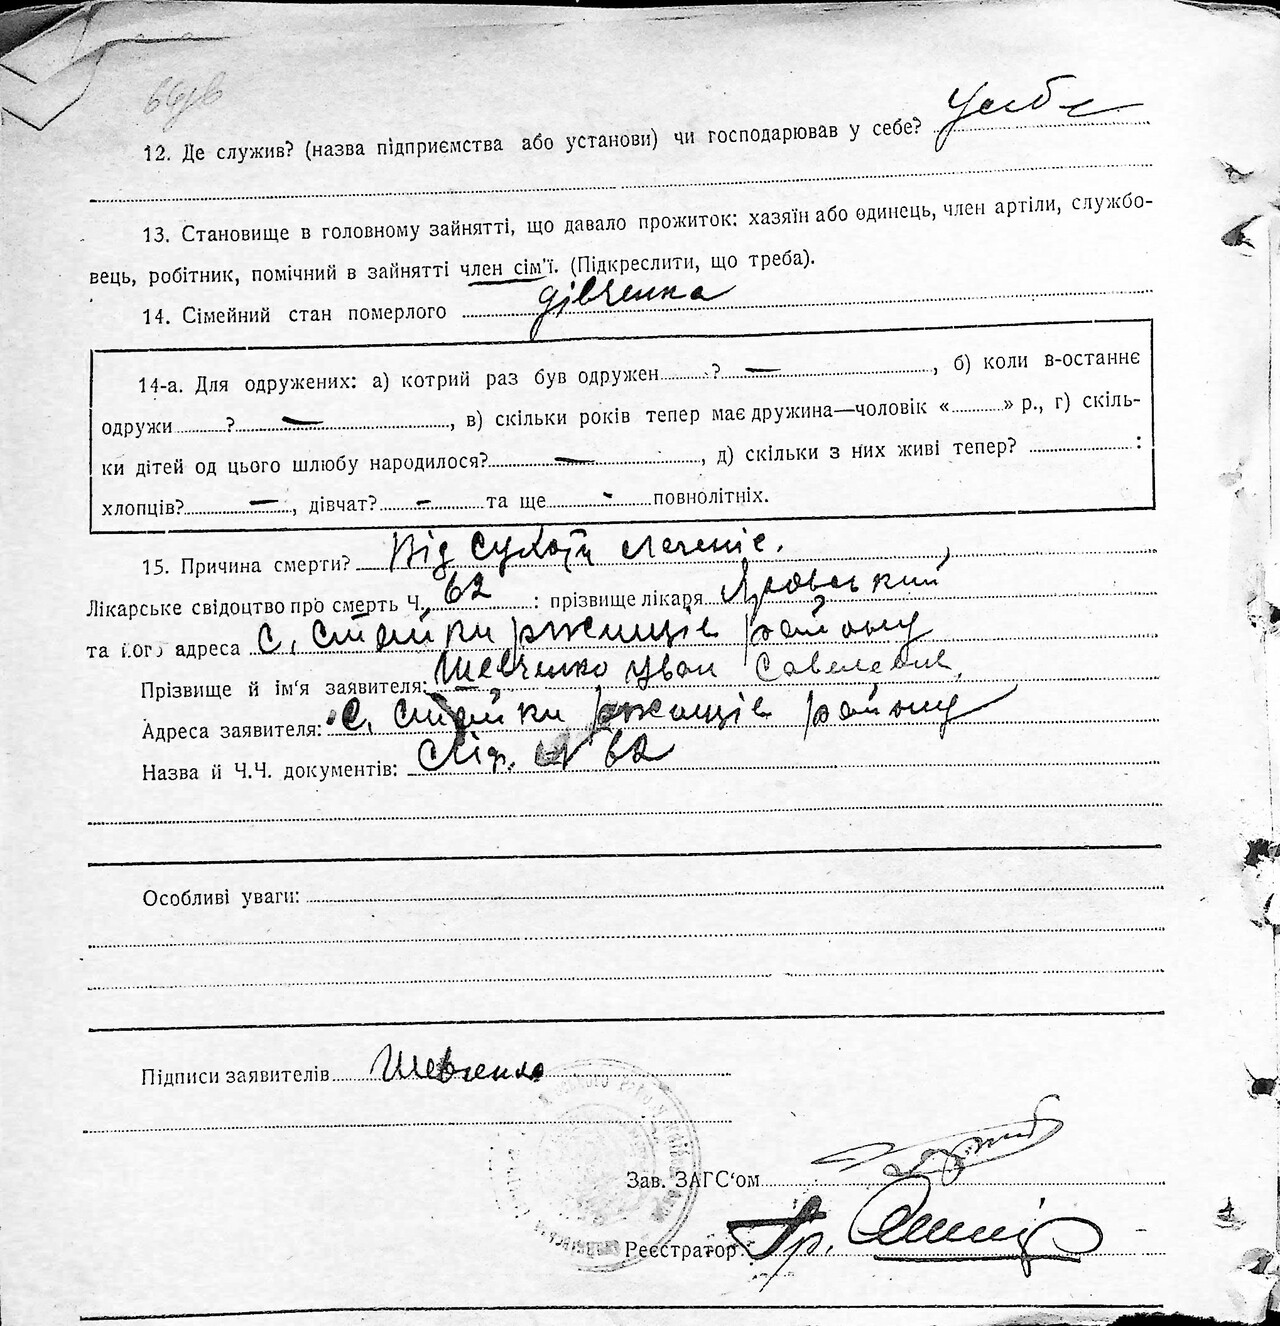 66зв
12. Де служив? (назва підприємства або установи) чи господарював у себе? У себе
13. Становище в головному зайнятті, що давало прожиток: хазяїн або одинець, член артіли, службо-
вець, робітник, помічний в зайнятті член сім'ї. (Підкреслити, що треба).
14. Сімейний стан померлого дівченка
14-а. Для одружених: а) котрий раз був одружен ? — , б) коли в-останнє
одружи ? — , в) скільки років тепер має дружина—чоловік « » р., г) скіль-
ки дітей од цього шлюбу народилося? — , д) скільки з них живі тепер? :
хлопців? — , дівчат? — та ще - повнолітніх.
15. Причина смерти? Від сухоти легеніс.
Лікарське свідоцтво про смерть Ч. 62 : прізвище лікаря Яровський
та його адреса С. Стайки ржищів району
Прізвище й ім'я заявителя: Шевченко Іван Савелевич
Адреса заявителя: С. Стайки ржищів району
Назва й Ч.Ч. документів: № 62
Особливі уваги:
Підписи заявителів Шевченко
Зав. ЗАГС'ом
Реєстратор: Гр.